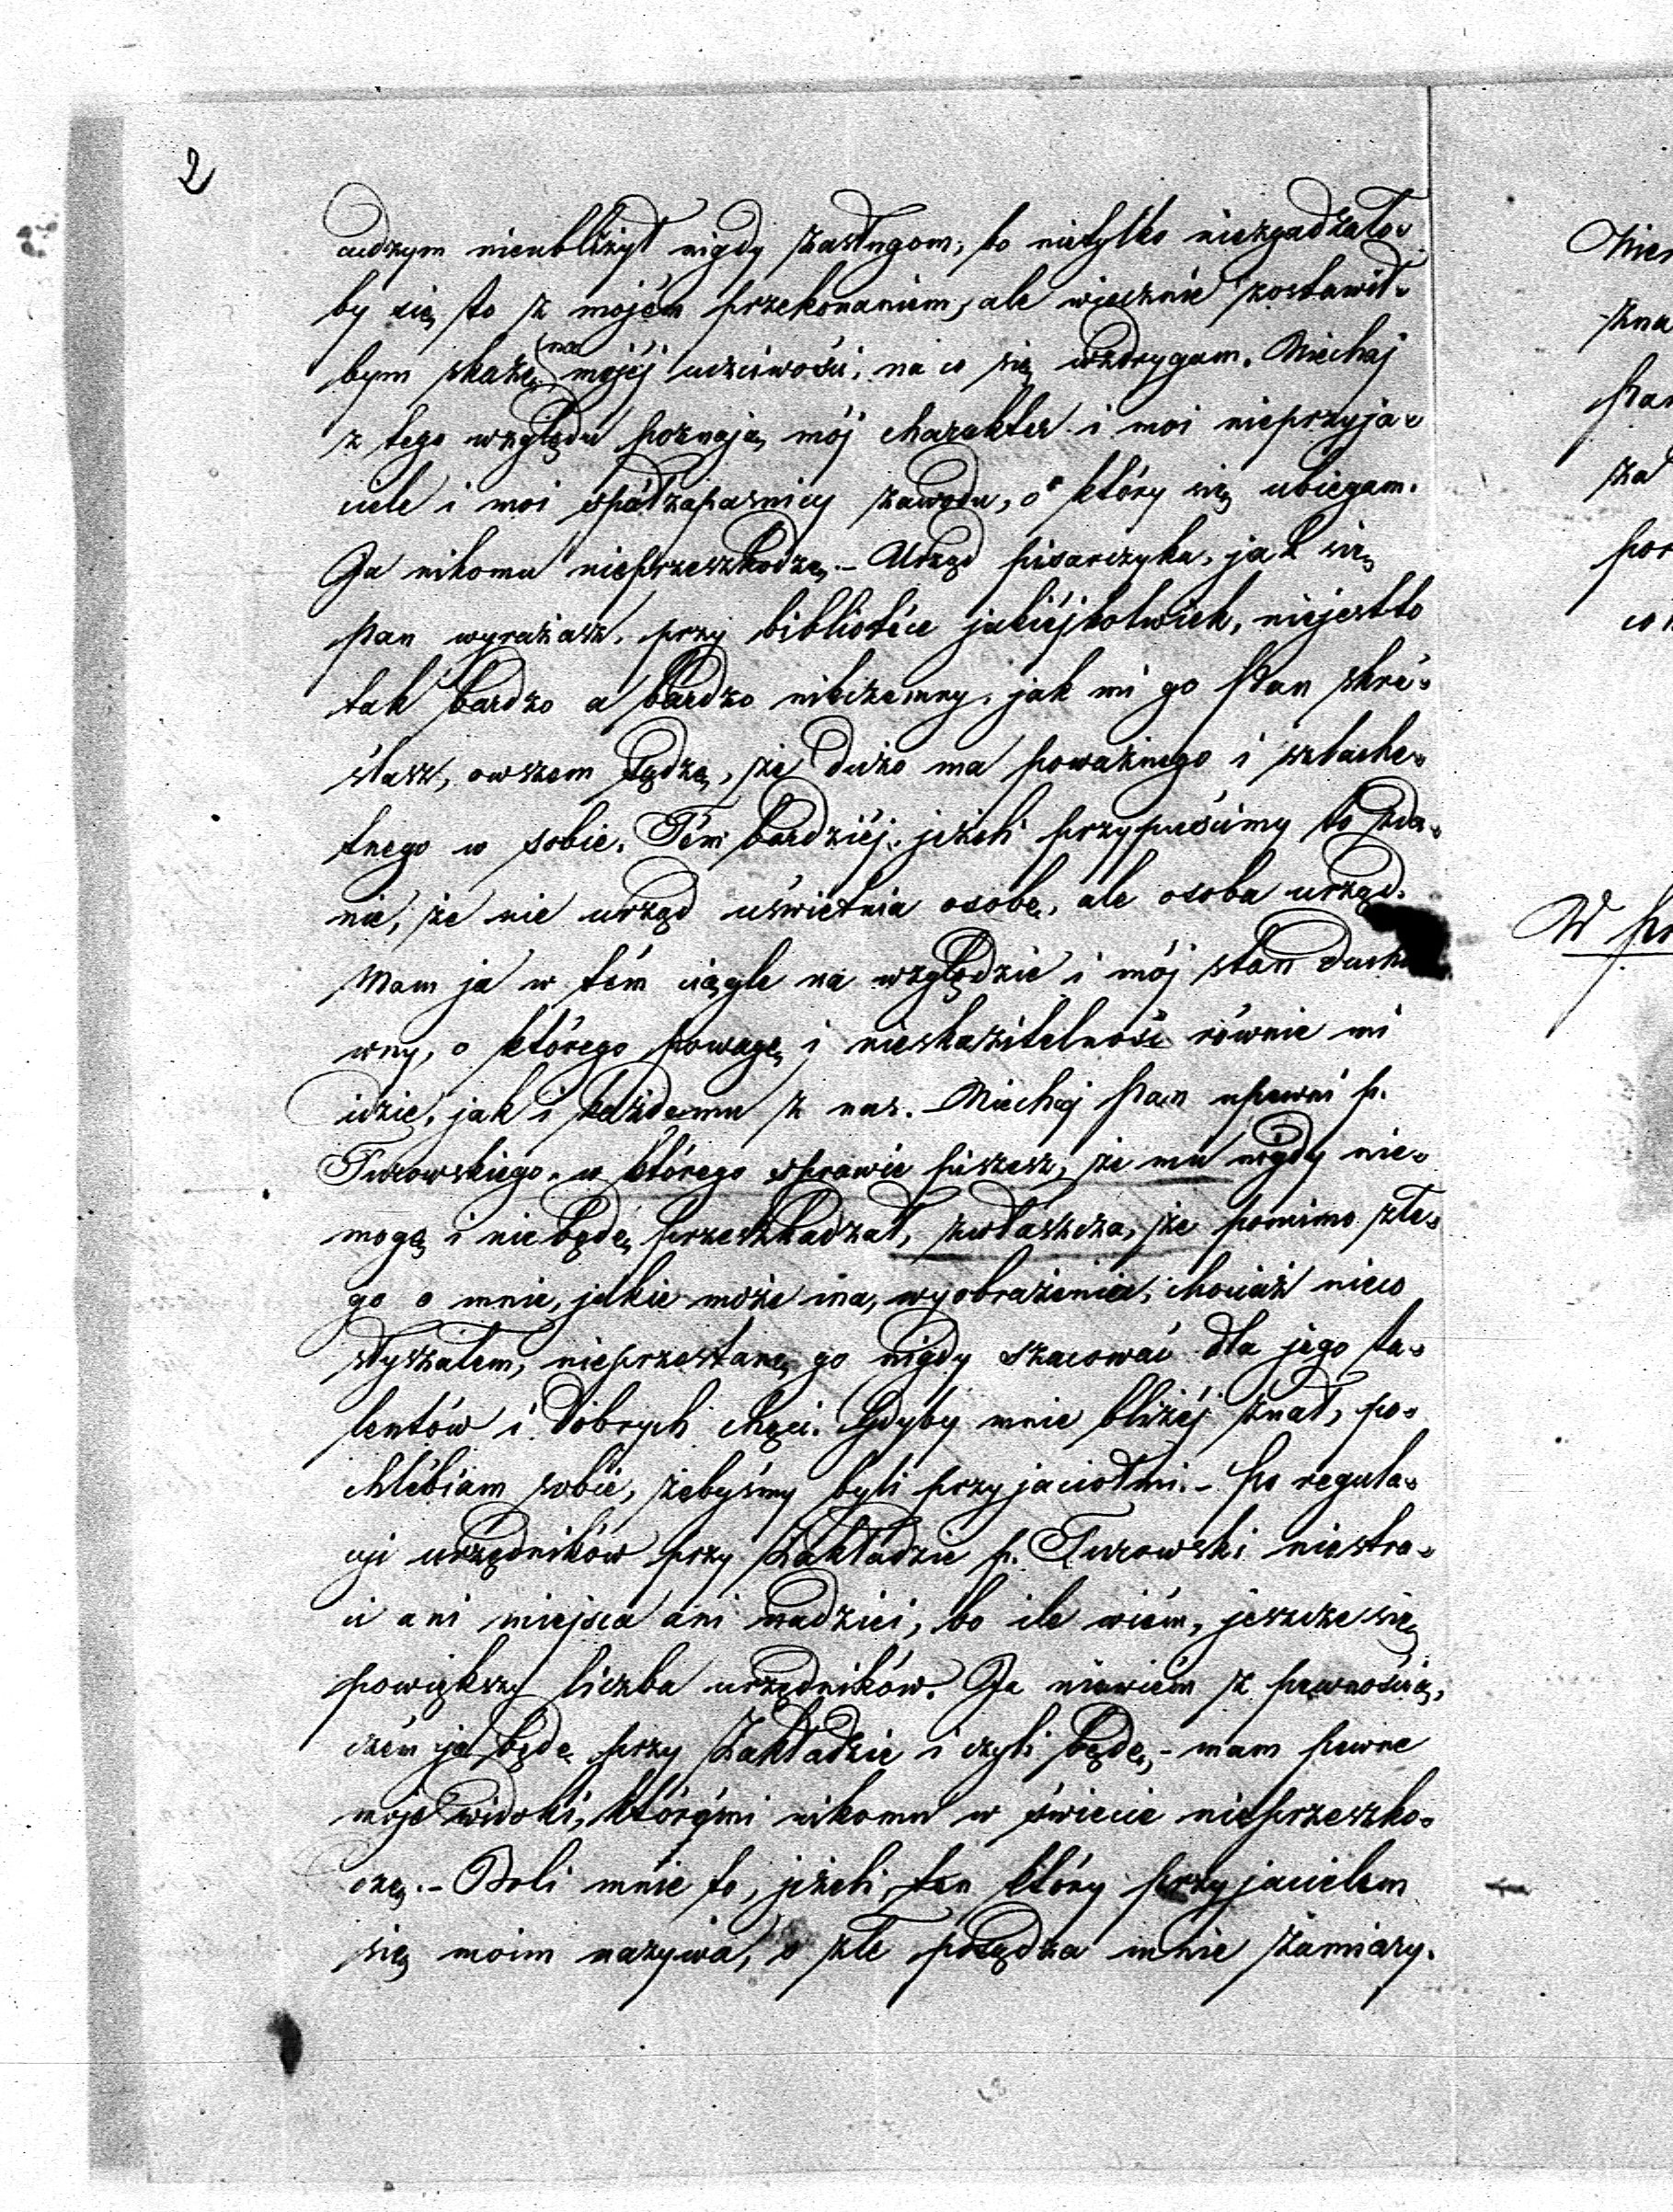 2
cudzym nieubliżył nigdy zasługom, bo nietylko niezgadzało-
by się to z mojém przekonaniem, ale wiecznie zostawił-
bym skazę na mojéj uczciwości, na co się wzdrygam. Niechaj
z tego względu poznają mój charakter i moi nieprzyja-
ciele i moi spółzapasnicy zawodu, o który się ubiegam.
Ja nikomu nieprzeszkodzę. – Urząd pisarczyka, jak się
Pan wyrażasz, przy bibliotéce jakiéjkolwiek, niejestto
tak bardzo a bardzo nikczemny, jak mi go Pan skré-
ślasz, owszem sądzę, że dużo ma poważnego i szlache-
tnego w sobie. Tém bardziéj, jeżeli przypuścimy to zda-
nie, że nie urząd uświetnia osobę, ale osoba urząd.
Mam ja w tém ciągle na względzie i mój stan ducho
wny, o którego powagę i nieskazitelność równie mi
idzie, jak i każdemu z nas. – Niechaj Pan upewni p.
Turowskiego, w którego sprawie piszesz, że mu nigdy nie-
mogę i nie będę przeszkadzał, zwłaszcza, że pomimo złe-
go o mnie, jakie może ma, wyobrażenia, chociaż nieco
słyszałem, nieprzestanę go nigdy szacować dla jego ta-
lentów i dobrych chęci. Gdyby mnie bliżéj znał, po-
chlébiam sobie, żebyśmy byli przyjaciołmi. – Po regula-
cji urzędników przy Zakładzie p. Turowski niestra-
ci ani miejsca ani nadziei, bo ile wiém, jeszcze się
powiększy liczba urzędników. Ja niewiém z pewnością,
czém ja będę przy Zakładzie i czyli będę, – mam pewne
moje widoki, którémi nikomu w świecie nieprzeszko-
dzę. – Boli mnie to, jeżeli ten który przyjacielem
się moim nazywa, o złe posądza mnie zamiary.
W pr